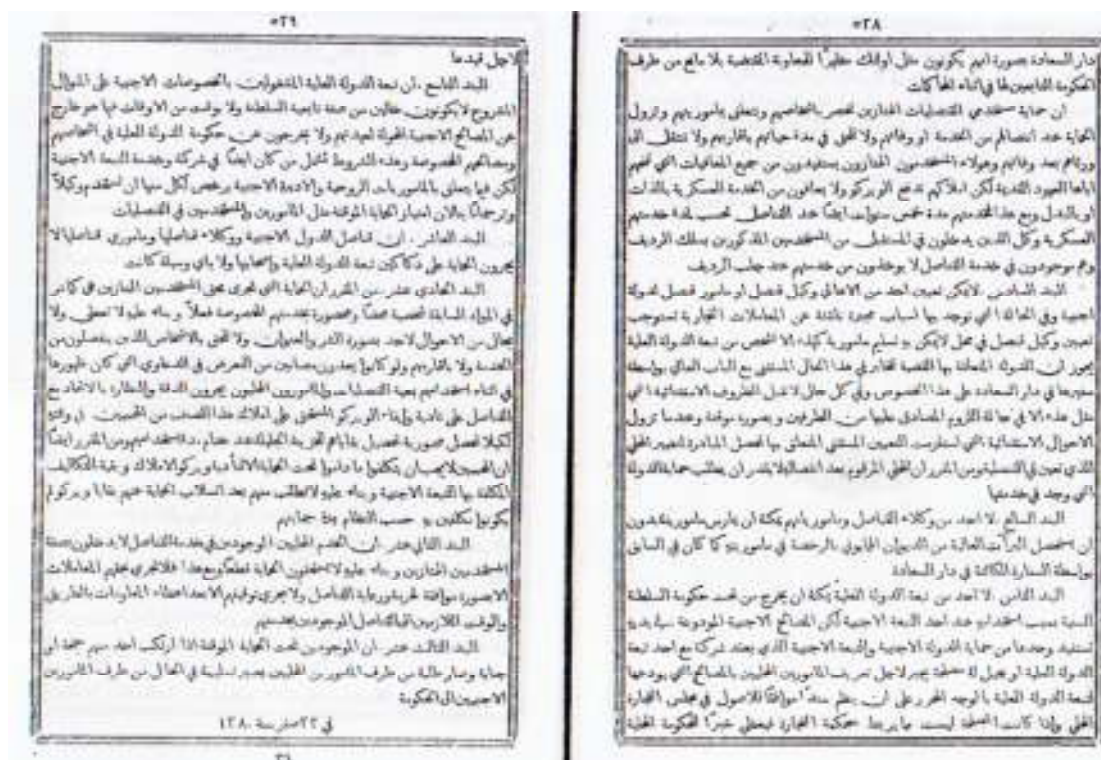 ٥٢٨
دار السعادة بصورة انهم يكونون مثل اولئك مظهرًا للمعاونة المقتضية بلا مانع من طرف
الحكومة التابعين لها في اثناء المحاكمات
ان حماية مستخدمي القنصليات الممتازين تنحصر باشخاصهم وتتعلق بمأموريتهم وتزول
الحماية عند انفصالهم من الخدمة او وفاتهم ولا تلحق في مدة حياتهم باقاربهم ولا تنتقل الى
ورثائهم بعد وفاتهم وهولاء المستخدمون الممتازون يستفيدون من جميع المعافيات التي تمنحهم
اياها العهود القديمة لكن املاكهم تدفع الويركو ولا يعافون من الخدمة العسكرية بالذات
او بالبدل ومع هذا فخدمتهم مدة خمس سنوات ايضًا عند القناصل تحسب لمدة خدمتهم
العسكرية وكل الذين يدخلون في المستقبل من المستخدمين المذكورين بسلك الرديف
وهم موجودون في خدمة القناصل لا يوخذون من خدمتهم عند جلب الرديف
البند السادس. لا يمكن تعيين احد من الاهالي وكيل قنصل او مامور قنصل لدولة
اجنبية وفي الحالة التي توجد بها اسباب مجبرة ناشئة عن المعاملات التجارية تستوجب
تعيين وكيل قنصل في محل لا يمكن تسليم مامورية كهذه الا لشخص من تبعة الدولة العلية
يجوز ان الدولة المتعلقة بها القضية تتخابر في هذا الحال المستثنى مع الباب العالي بواسطة
سفيرها في دار السعادة على هذا الخصوص وفي كل حال لا تقبل الظروف الاستثنائية التي
مثل هذه الا في حالة اللزوم المصادق عليها من الطرفين وبصورة موقتة وعندما تزول
الاحوال الاستثنائية التي استلزمت التعيين المستثنى المتعلق بها تحصل المبادرة لتغيير المحلي
الذي تعين في القنصلية ومن المقرر ان المحلي المرقوم بعد انفصاله لا يقدر ان يطلب حماية الدولة
التي وجد في خدمتها
البند السابع. لا احد من وكلاء القناصل ومامورياتهم يمكنه ان يمارس ماموريته بدون
ان يستحصل البراءت العالية من الديوان الهمايوني بالرخصة في ماموريته كما كان في السابق
بواسطة السفارة الكائنة في دار السعادة
البند الثامن. لا احد من تبعة الدولة العلية يمكنه ان يخرج من تحت حكومة السلطنة
السنية بسبب استخدامه عند احد التبعة الاجنبية لكن المصالح الاجنبية المودوعة في يديه
تستفيد وحدها من حماية الدولة الاجنبية والتبعة الاجنبية الذي يعقد شركة مع احد تبعة
الدولة العلية او يجعل له مصلحة يجبر لاجل تعريف المامورين المحليين بالمصالح التي يودعها
لتبعة الدولة العلية بالوجه المحرر على ان ينظم سندًا موافقًا للاصول في مجلس التجارة
المحلي واذا كانت المصلحة ليست مما يربط بمحكمة التجارة فيعطي خبرًا للحكومة المحلية
٥٢٩
لاجل قيدها
البند التاسع. ان تبعة الدولة العلية المشغولين بالخصوصات الاجنبية على المنوال
المشروح لا يكونون خالين من صفة تابعية السلطنة ولا بوقت من الاوقات فيما هو خارج
عن المصالح الاجنبية المحولة لعهدتهم ولا يخرجون عن حكومة الدولة العلية في اشخاصهم
ومصالحهم المخصوصة وهذه الشروط تشمل من كان ايضًا في شركة وخدمة التبعة الاجنبية
لكن فيما يتعلق بالماموريات الروحية والاديرة الاجنبية يرخص لكل منها ان تستخدم وكيلاً
وترجمانًا ينالان امتياز الحماية الموقتة مثل المامورين والمستخدمين في القنصليات
البند العاشر. ان قناصل الدول الاجنبية ووكلاء قناصلها وماموري قناصلها لا
يجرون الحماية على دكاكين تبعة الدولة العلية واصحابها ولا باي وسيلة كانت
البند الحادي عشر. من المقرر ان الحماية التي تجري بحق المستخدمين الممتازين هي كما مر
في المواد السابقة شخصية محضًا ومحصورة بخدمتهم المخصوصة فعلاً وبناء عليه لا تعطى ولا
بحال من الاحوال لاحد بصورة الشر والعنوان ولا تلحق بالاشخاص الذين ينفصلون من
الخدمة ولا باقاربهم ولو كانوا يعدون مصابين من التعرض في الدعاوي التي كان ظهورها
في اثناء استخدامهم بمعية القنصليات والمامورون المحليون يجرون الدقة والنظارة بالاتحاد مع
القناصل على تادية وايفاء الويركو المستحق على املاك هذا الصنف من المحميين في وقته
لكيلا تحصل صعوبة تحصيل بقاياهم لخزينة الجليلة عند ختام مدة استخدامهم ومن المقرر ايضًا
ان المحميين لا يجبون ان يتكلفوا ما داموا تحت الحماية الا لتأدية ويركو الاملاك وبقية التكاليف
المكلفة بها التبعة الاجنبية وبناء عليه لا تطلب منهم بعد انسلاب الحماية عنهم بقايا ويركو لم
يكونوا مكلفين به حسب النظام مدة حمايتهم
البند الثاني عشر. ان الخدم المحليين الموجودين في خدمة القناصل لا يدخلون بصفة
المستخدمين الممتازين وبناء عليه لا يستحقون الحماية قطعًا ومع هذا فلا تجري بحقهم المعاملات
الا بصورة موافقة لحرية ورعاية القناصل ولا يجري توقيفهم الا بعد اعطاء المعلومات بالطريق
والوقت اللازمين الى القناصل الموجودين بخدمتهم
البند الثالث عشر. ان الموجودين تحت الحماية الموقتة اذا ارتكب احد منهم جنحة او
جناية وصار طلبه من طرف المامورين المحليين يصير تسليمه في الحال من طرف المامورين
الاجنبيين الى الحكومة
في ٢٣ صفر سنة ١٢٨٠